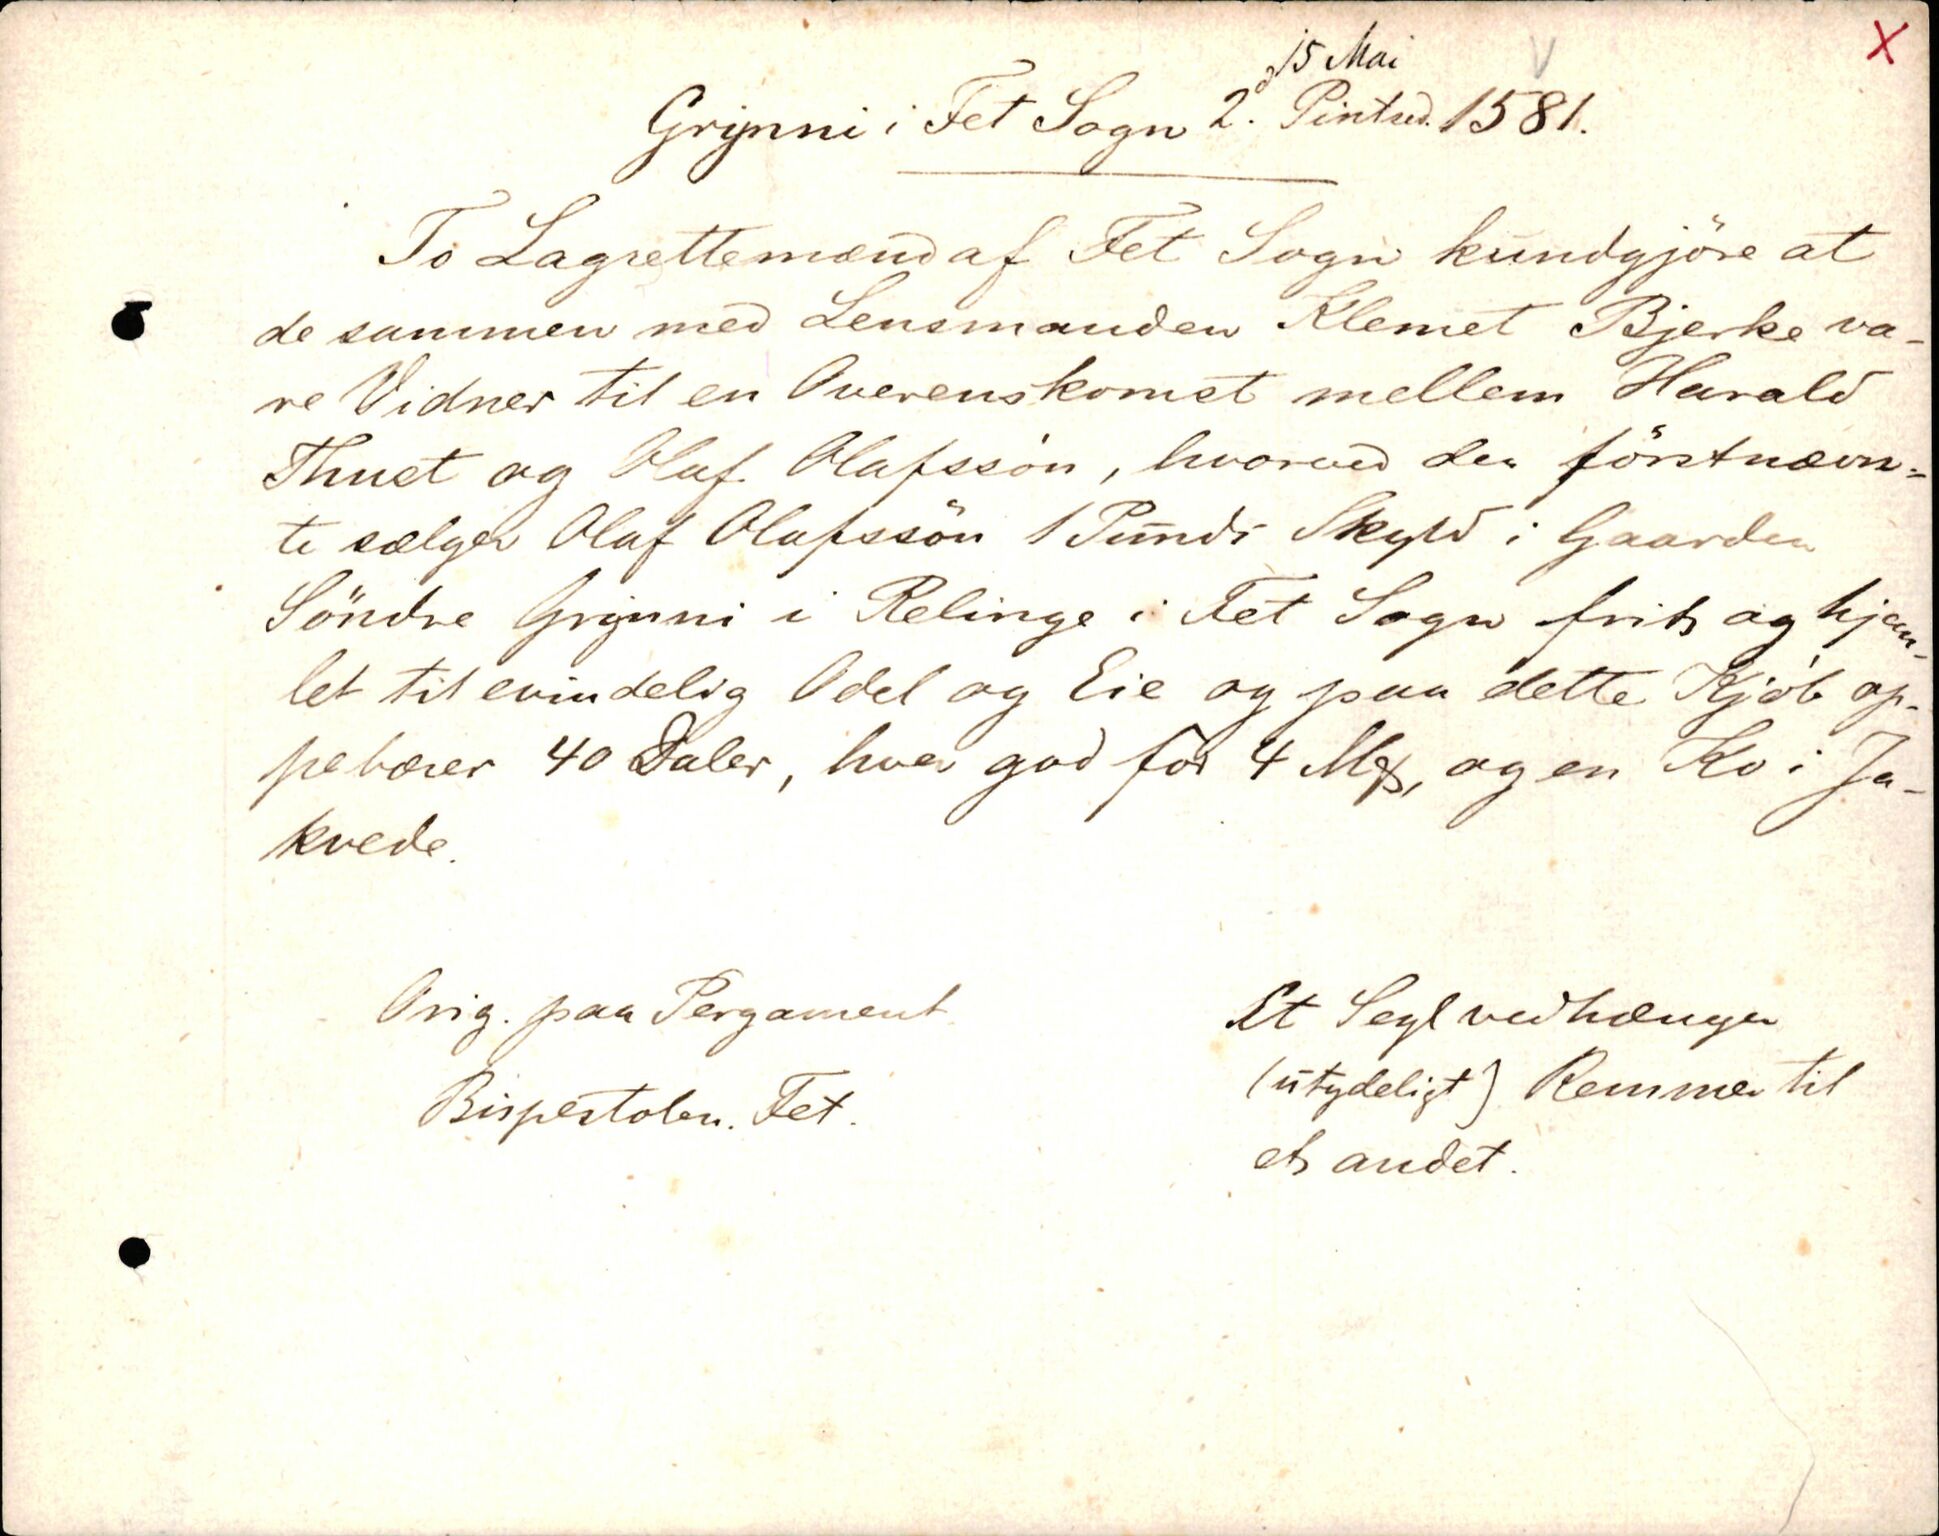 15 Mai
Grynni i Fet Sogn 2. d Pintsd. 1581.
To Lagrettemænd af Fet Sogn kundgjöre at
de sammen med Lensmanden Klemet Bjerke va-
re Vidner til en Overenskomst mellem Harald
Thuet og Olaf Olafssön, hvorved den förstnævn-
te sælger Olaf Olafssön 1 Punds Skyld i Gaarden
Söndre Grynni i Relinge i Fet Sogn frit og hjem-
let til evindelig Odel og Eie og paa dette Kjöb op-
pebærer 40 Daler, hver god for 4 Mk, og en Ko i Ja-
kvede.
Orig. paa Pergament
Bispestolen. Fet.
Et Segl vedhænger
(utydeligt) Remmer til
et andet.
X